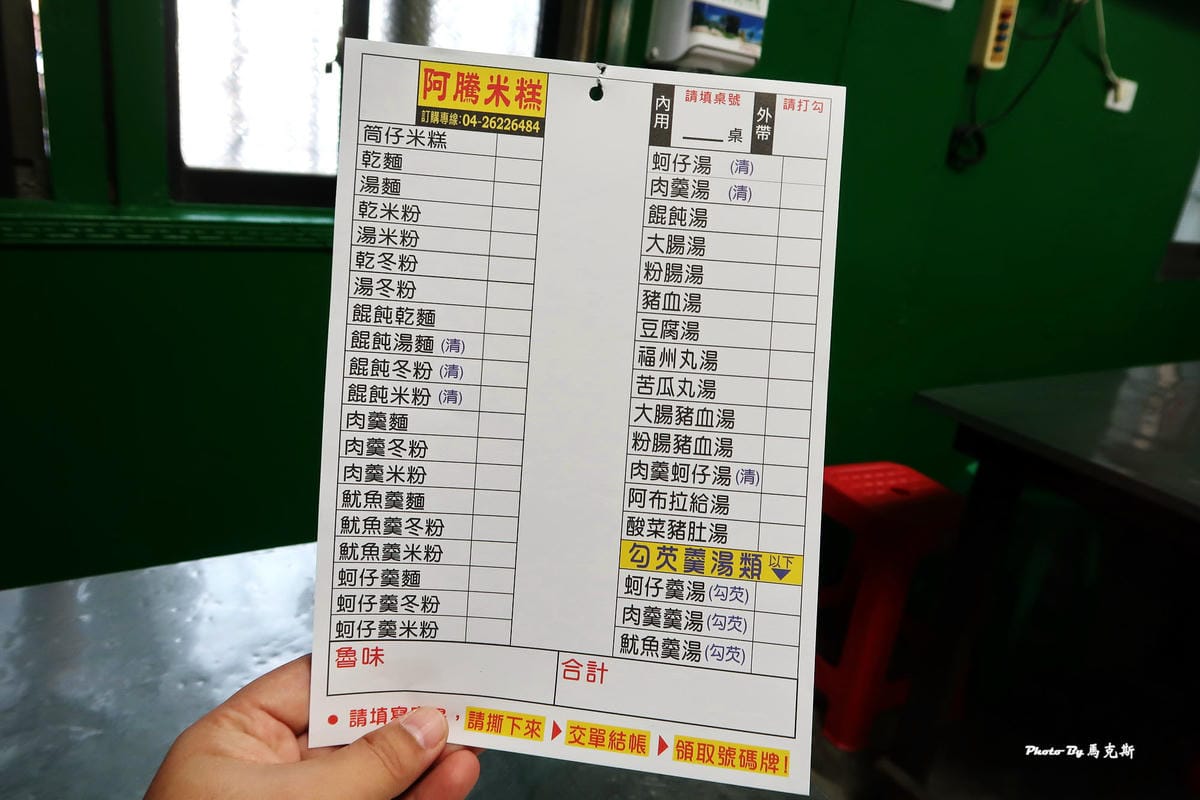 阿騰米糕
訂購專線:04-26226484
筒仔米糕
乾麵
湯麵
乾米粉
湯米粉
乾冬粉
湯冬粉
餛飩乾麵
餛飩湯麵 (清)
餛飩冬粉 (清)
餛飩米粉 (清)
肉羹麵
肉羹冬粉
肉羹米粉
魷魚羹麵
魷魚羹冬粉
魷魚羹米粉
蚵仔羹麵
蚵仔羹冬粉
蚵仔羹米粉
內用
請填桌號
桌
外帶
請打勾
蚵仔湯 (清)
肉羹湯 (清)
餛飩湯
大腸湯
粉腸湯
豬血湯
豆腐湯
福州丸湯
苦瓜丸湯
大腸豬血湯
粉腸豬血湯
肉羹蚵仔湯 (清)
阿布拉給湯
酸菜豬肚湯
勾芡羹湯類 以下
蚵仔羹湯(勾芡)
肉羹羹湯(勾芡)
魷魚羹湯(勾芡)
魯味
合計
● 請填寫 , 請撕下來 交單結帳 領取號碼牌!
Photo By 馬克斯